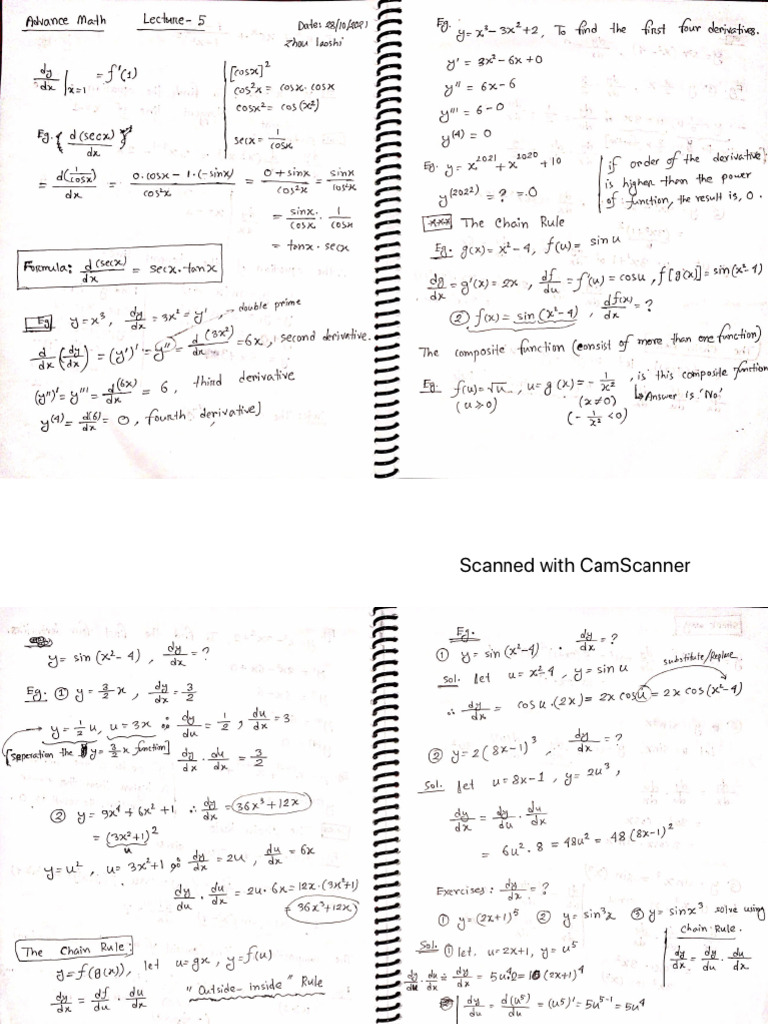 Advance Math Lecture - 5 Date: 28/10/2021
Zhou laoshi
dy/dx |x=1 = f'(1)
[cosx]²
cos²x = cosx. cosx
cosx² = cos (x²)
secx = 1/cosx
Eg. { d(secx)/dx }
= d(1/cosx)/dx = 0.cosx - 1.(-sinx)/cos²x = 0+sinx/cos²x = sinx/cos²x
= sinx/cosx . 1/cosx
= tanx . secx
Formula: d(secx)/dx = secx.tanx
Eg y = x³, dy/dx = 3x² = y' double prime
d/dx (dy/dx) = (y')' = y'' = d(3x²)/dx = 6x, second derivative.
(y'')' = y''' = d(6x)/dx = 6, third derivative
y⁽⁴⁾ = d(6)/dx = 0, fourth derivative]
Eg. y = x³ - 3x² + 2, To find the first four derivatives.
y' = 3x² - 6x + 0
y'' = 6x - 6
y''' = 6 - 0
y⁽⁴⁾ = 0
Eg. y = x²⁰²¹ + x²⁰²⁰ + 10
y⁽²⁰²²⁾ = ? = 0
if order of the derivative
is higher than the power
of function, the result is, 0.
*** The Chain Rule
Eg. g(x) = x² - 4, f(u) = sin u
dg/dx = g'(x) = 2x, df/du = f'(u) = cosu, f[g(x)] = sin(x²-4)
② f(x) = sin (x²-4), df(x)/dx = ?
The composite function (consist of more than one function)
Eg. f(u) = √u, u = g(x) = - 1/x², is this composite function
(u ≥ 0) (x ≠ 0) ↳ Answer is 'No'
(- 1/x² < 0)
Scanned with CamScanner
y = sin (x² - 4), dy/dx = ?
Eg: ① y = 3/2 x, dy/dx = 3/2
y = 1/2 u, u = 3x ∴ dy/du = 1/2, du/dx = 3
[Seperation the y = 3/2 x function] dy/du . du/dx = 3/2
② y = 9x⁴ + 6x² + 1 ∴ dy/dx = 36x³ + 12x
= (3x²+1)²
u
y = u², u = 3x²+1 ∴ dy/du = 2u, du/dx = 6x
dy/du . du/dx = 2u. 6x = 12x.(3x²+1)
= 36x³+12x
The Chain Rule:
y = f(g(x)), let u = gx, y = f(u)
dy/dx = df/du . du/dx "Outside- inside" Rule
Eg.
① y = sin (x²-4) . dy/dx = ?
Sol. let u = x²-4, y = sin u substitute/Replace
∴ dy/dx = cos u . (2x) = 2x cosu = 2x cos(x²-4)
② y = 2(8x-1)³, dy/dx = ?
Sol. let u = 8x-1, y = 2u³,
dy/dx = dy/du . du/dx
= 6u². 8 = 48u² = 48 (8x-1)²
Exercises: dy/dx = ?
① y = (2x+1)⁵ ② y = sin³x ③ y = sinx³ solve using
chain Rule.
Sol. ① let. u = 2x+1, y = u⁵ dy/dx = dy/du . du/dx
dy/du . du/dx = dy/dx = 5u⁴.2 = 10(2x+1)⁴
dy/du = d(u⁵)/du = (u⁵)' = 5u⁵⁻¹ = 5u⁴